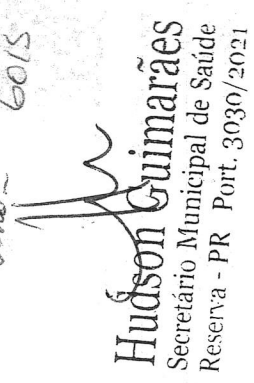 6015
Hudson Guimarães
Secretário Municipal de Saúde
Reserva - PR Port. 3030/2021